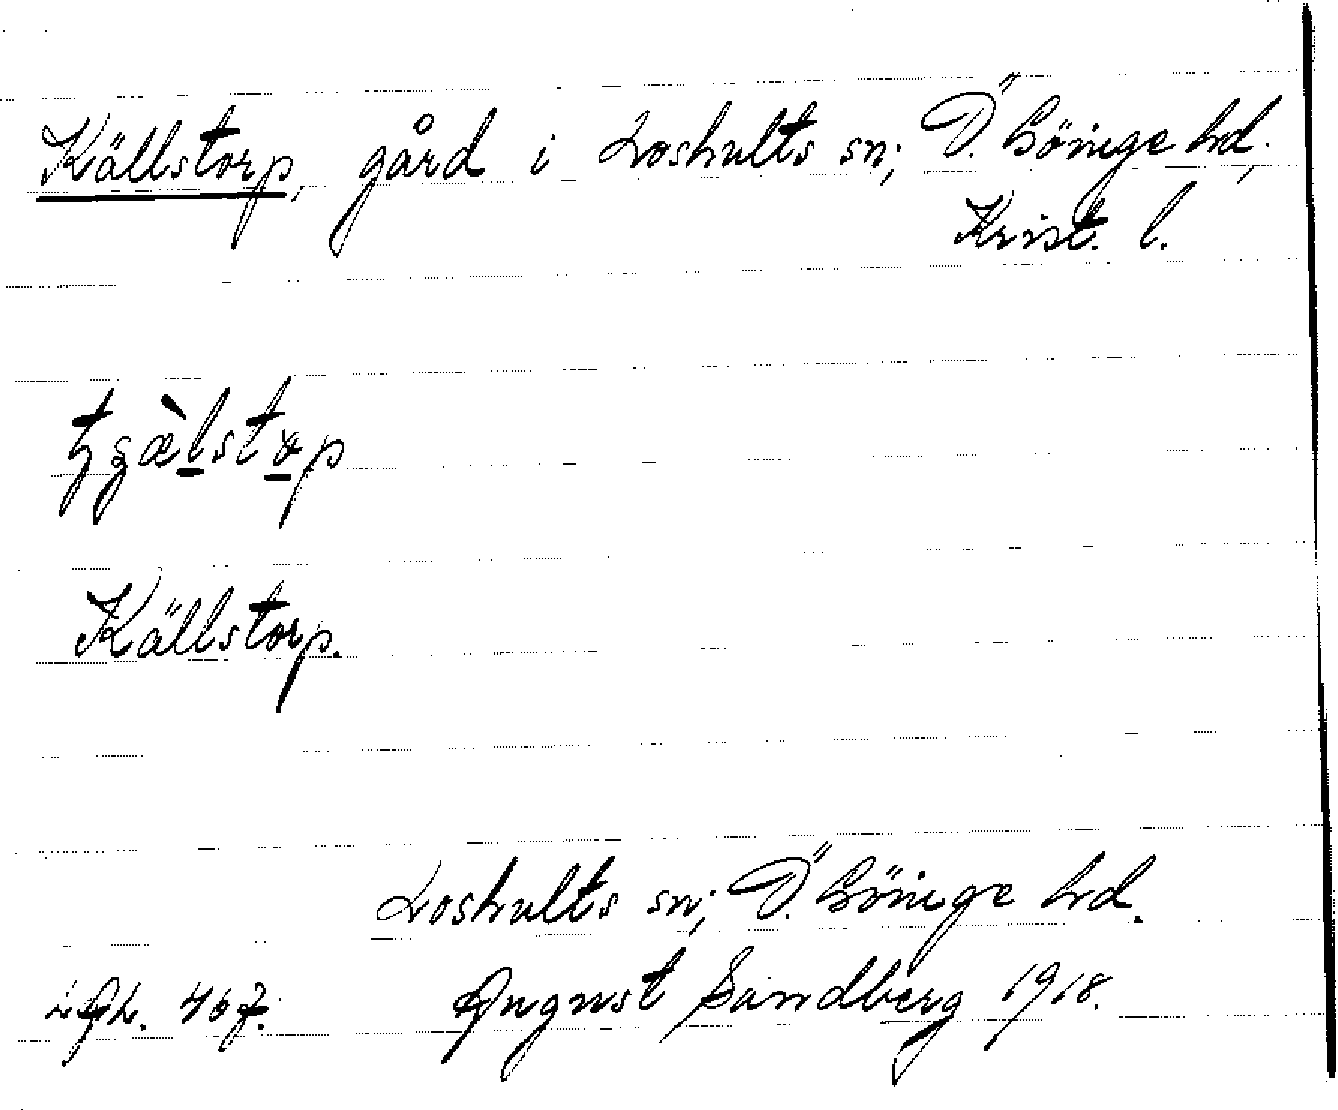 Källstorp, gård i Loshults sn; Ö. Göinge hd,
Krist. l.
Källstorp.
Loshults sn; Ö. Göinge hd.
August Sandberg 1918.